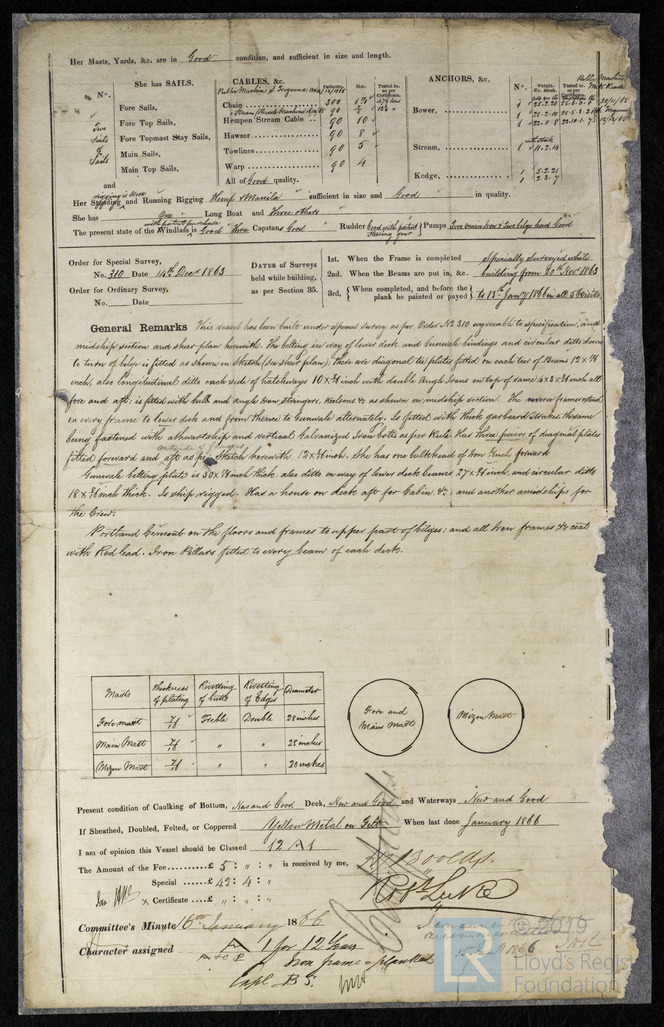 Her Masts, Yards, &c. are in Good condition, and sufficient in size and length.
She has SAILS.
CABLES, &c.
ANCHORS, &c.
Nº.
Fathoms.
Size.
Tested to. as per Certificate.
Nº.
Weight. Ex. Stock.
Tested to. as per Certificate.
Fore Sails,
Chain 300
Two Fore Top Sails,
Hempen Stream Cable 90 10
Bower,
Suits Fore Topmast Stay Sails,
Hawser 90 8
Main Sails,
Towlines 90 5
Stream, 1 11.2.14
Main Top Sails,
Warp 90 4
Kedge, 1 5.2.21
1 2.3.7
and
All of Good quality.
Her Standing and Running Rigging Hemp & Manila sufficient in size and Good in quality.
She has One Long Boat and Three others
The present state of the Windlass is Good Three Capstans Good Rudder Good with patent Steering gear Pumps Two main Iron & Two bilge hand Good
Order for Special Survey,
No. 310 Date 14th Decr 1863
Order for Ordinary Survey,
No. Date
DATES of Surveys
held while building,
as per Section 35.
1st. When the Frame is completed
2nd. When the Beams are put in, &c.
3rd. { When completed, and before the plank be painted or payed }
Specially Surveyed while
building from 20th Novr 1863
to 13th Jany 1866 in all 56 visits
General Remarks This vessel has been built under special survey as per Order No 310 agreeable to specification, and
midship section and sheer plan herewith. The belting in way of lower deck and Gunwale bindings and circular ditto down
to turn of bilge is fitted as shown in Sketch (see sheer plan); There are diagonal tie plates fitted on each tier of Beams 12 x
inch, also longitudinal ditto each side of hatchways 10 x inch with double Angle Irons on top of same 4 x 3 x inch all
fore and aft; is fitted with bulb and angle Iron stringers, keelsons &c as shown on midship section. The reverse frames extend
on every frame to lower deck and from thence to Gunwale alternately. Is fitted with thick garboard strake the same
being fastened with athwartship and vertical Galvanized Iron bolts as per Rule. Has three pairs of diagonal plates
fitted forward and aft as per Sketch herewith 12 x inch. She has one bulkhead of Iron inch forward
Gunwale belting plate is 30 x inch thick. also ditto in way of lower deck beams 27 x inch, and circular ditto
18 x inch thick. Is ship rigged. Has a house on deck aft for Cabin &c; and another amidships for
the Crew.
Portland Cement on the floors and frames to upper part of bilges; and all Iron frames &c coat
with Red lead. Iron Pillars fitted to every beam of each deck.
Masts
Thickness of plating
Rivetting of butts
Rivetting of Edges
Diameter
Fore mast 7/16 Treble Double 28 inches
Main Mast 7/16 " " 28 inches
Mizen Mast 7/16 " " 20 inches
Fore and Main Masts
Mizen Mast
Present condition of Caulking of Bottom, New and Good Deck, New and Good and Waterways New and Good
If Sheathed, Doubled, Felted, or Coppered Yellow Metal on Felt When last done January 1866
I am of opinion this Vessel should be Classed 12 A 1
The Amount of the Fee £ 5 : " : " is received by me,
Special £ 42 : 4 : "
Certificate £ " : " : "
Robt Luke
Committee's Minute 16th January 1866
Character assigned A 1 for 12 Years
Iron frame – planked
© 2019
Lloyd's Register
Foundation
LR